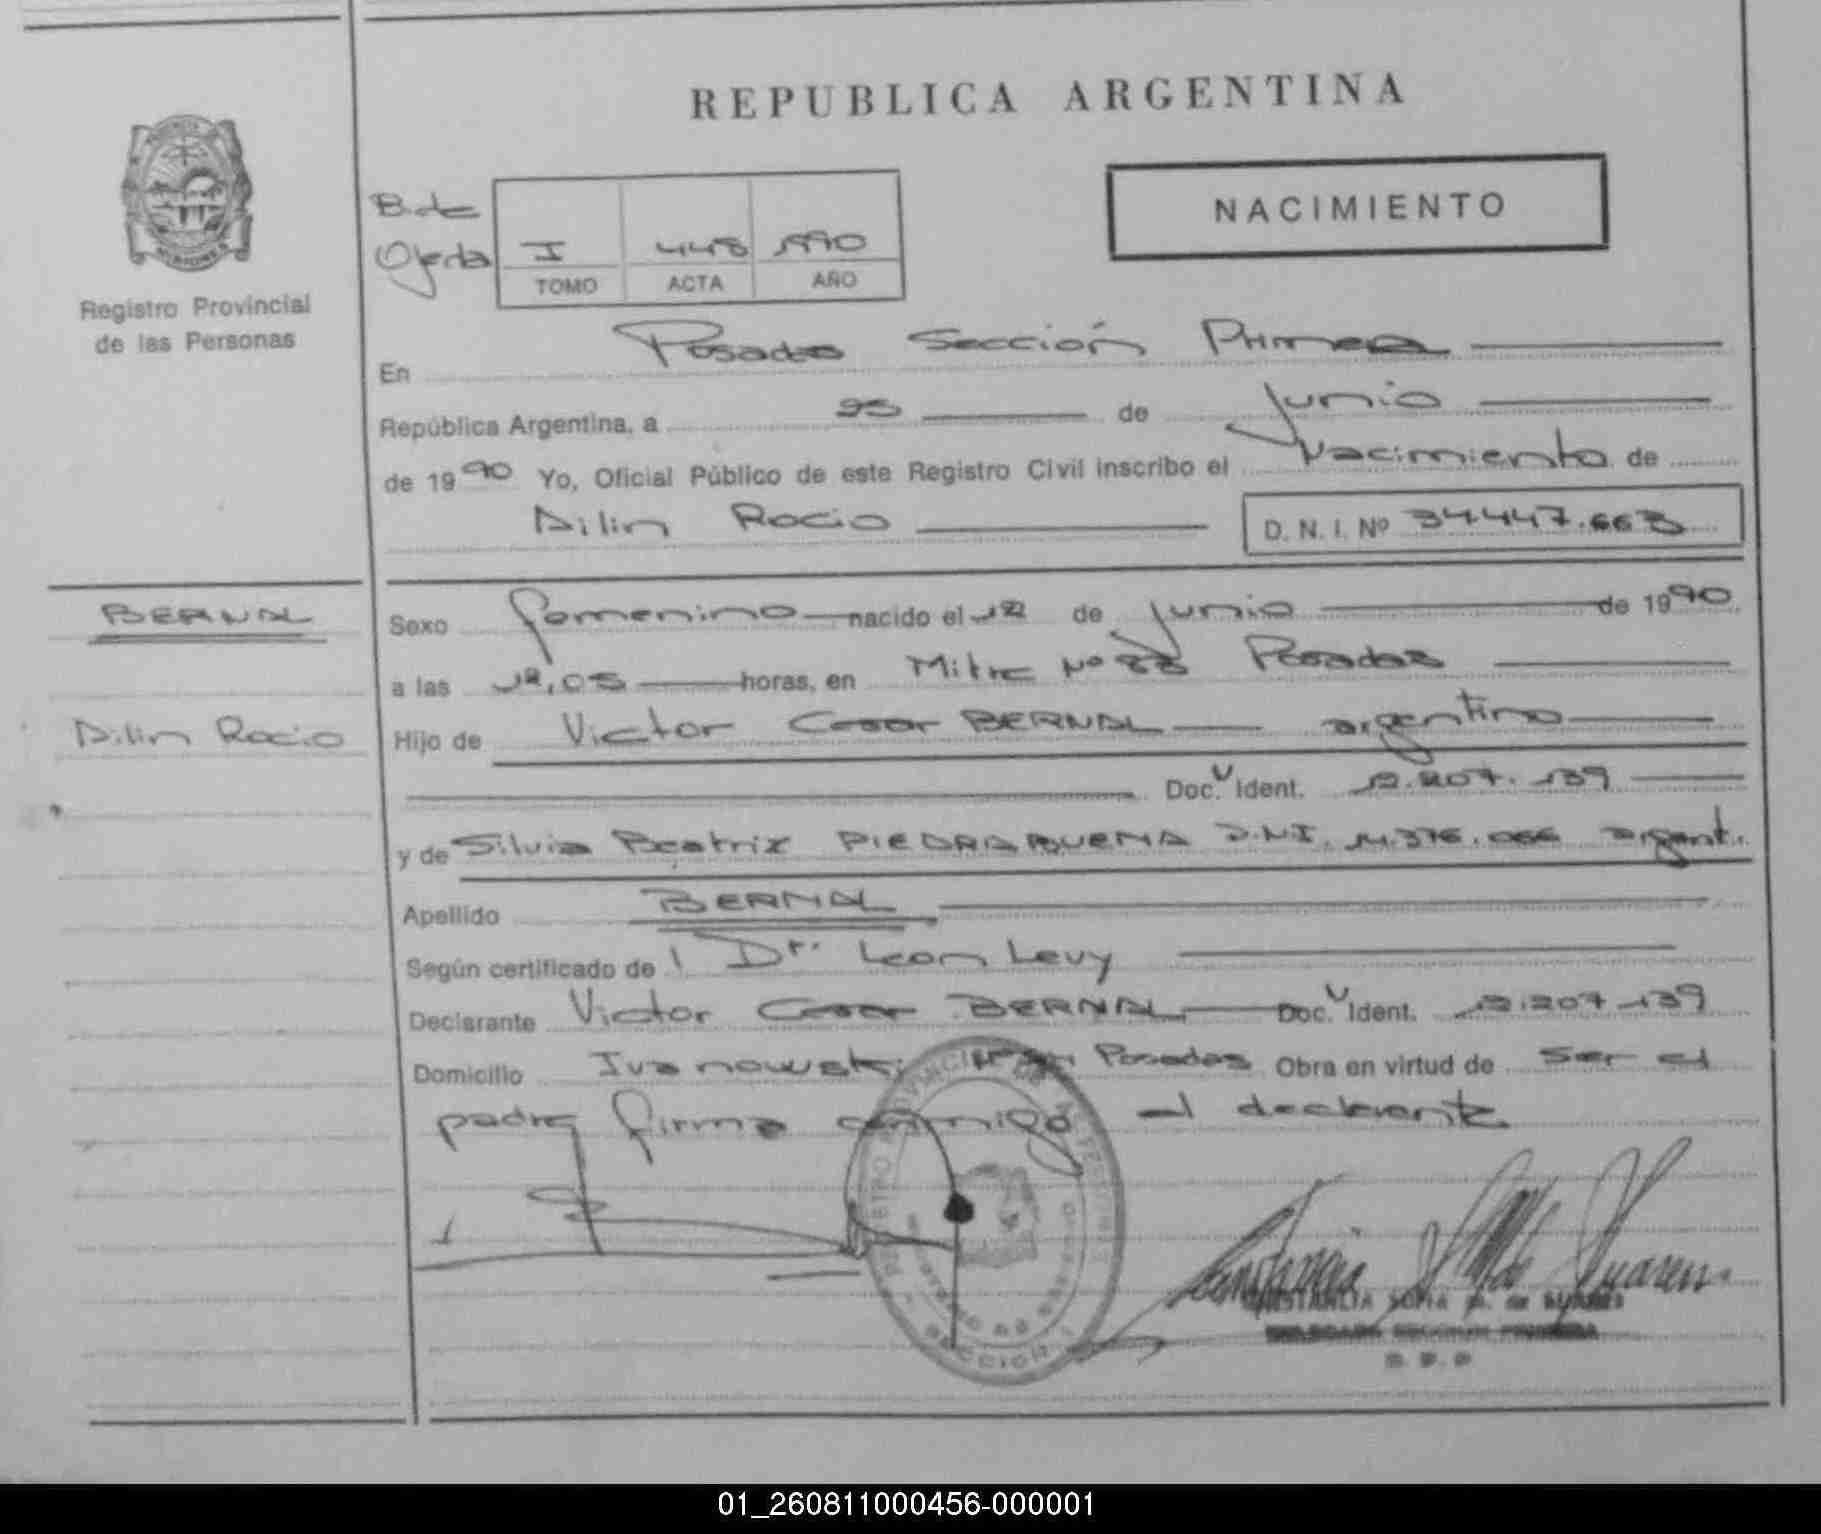 REPUBLICA ARGENTINA
NACIMIENTO
B. de
Ojeda I 448 1990
TOMO ACTA AÑO
Registro Provincial
de las Personas
En Posadas Sección Primera
República Argentina, a 25 de Junio
de 1990 Yo, Oficial Público de este Registro Civil inscribo el Nacimiento de
Ailin Rocio D. N. I. Nº 34.447.663
BERNAL
Sexo femenino nacido el 12 de Junio de 1990
a las 12,05 horas, en Mitre Nº Posadas
Ailin Rocio
Hijo de Victor Cesar BERNAL argentino
Doc. Ident. 12.207.139
y de Silvia Beatriz PIEDRABUENA D.N.I. 14.376.066 argent.
Apellido BERNAL
Según certificado de Dr. Leon Levy
Declarante Victor Cesar BERNAL Doc. Ident. 12.207.139
Domicilio Ivanowski Posadas Obra en virtud de ser el
padre firma conmigo el declarante
CONSTANCIA SOFIA M. de SUARES
DELEGADA SECCION PRIMERA
R. P. P.
SECCION 1
01_260811000456-000001